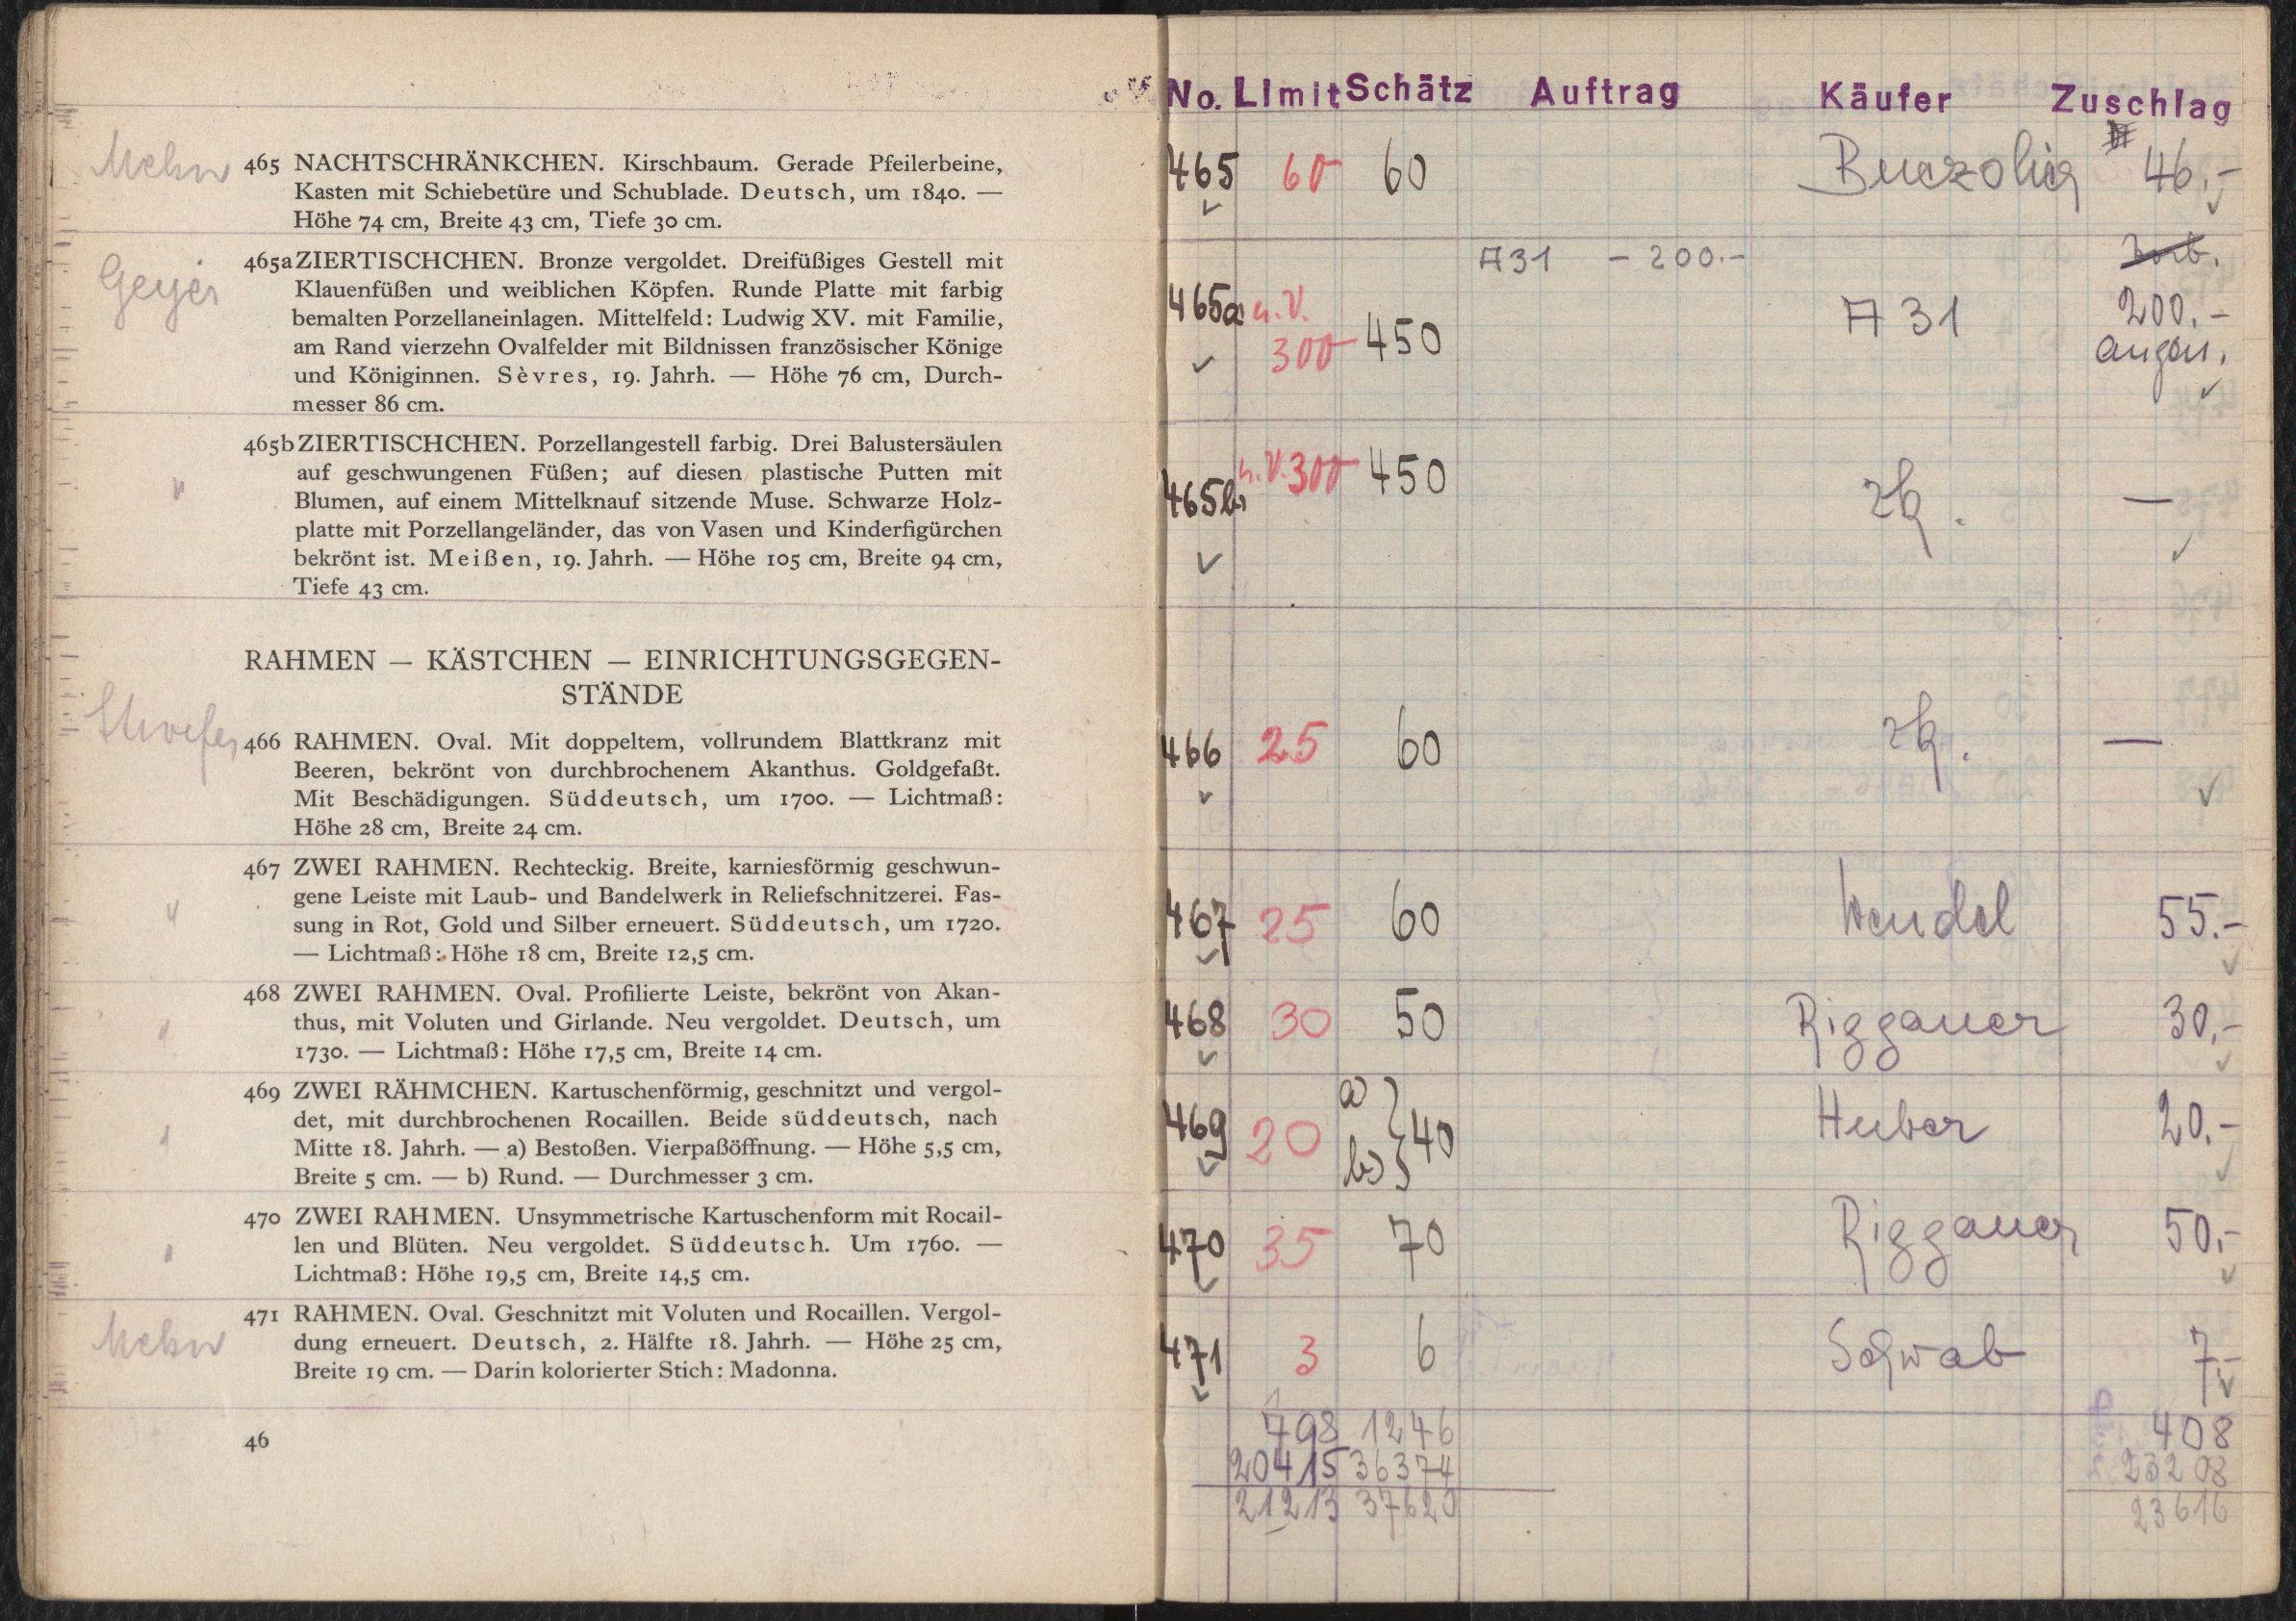 465 NACHTSCHRÄNKCHEN. Kirschbaum. Gerade Pfeilerbeine,
Kasten mit Schiebetüre und Schublade. Deutsch, um 1840. —
Höhe 74 cm, Breite 43 cm, Tiefe 30 cm.
Geyer
465a ZIERTISCHCHEN. Bronze vergoldet. Dreifüßiges Gestell mit
Klauenfüßen und weiblichen Köpfen. Runde Platte mit farbig
bemalten Porzellaneinlagen. Mittelfeld: Ludwig XV. mit Familie,
am Rand vierzehn Ovalfelder mit Bildnissen französischer Könige
und Königinnen. Sèvres, 19. Jahrh. — Höhe 76 cm, Durch-
messer 86 cm.
465b ZIERTISCHCHEN. Porzellangestell farbig. Drei Balustersäulen
auf geschwungenen Füßen; auf diesen plastische Putten mit
Blumen, auf einem Mittelknauf sitzende Muse. Schwarze Holz-
platte mit Porzellangeländer, das von Vasen und Kinderfigürchen
bekrönt ist. Meißen, 19. Jahrh. — Höhe 105 cm, Breite 94 cm,
Tiefe 43 cm.
RAHMEN — KÄSTCHEN — EINRICHTUNGSGEGEN-
STÄNDE
466 RAHMEN. Oval. Mit doppeltem, vollrundem Blattkranz mit
Beeren, bekrönt von durchbrochenem Akanthus. Goldgefaßt.
Mit Beschädigungen. Süddeutsch, um 1700. — Lichtmaß:
Höhe 28 cm, Breite 24 cm.
467 ZWEI RAHMEN. Rechteckig. Breite, karniesförmig geschwun-
gene Leiste mit Laub- und Bandelwerk in Reliefschnitzerei. Fas-
sung in Rot, Gold und Silber erneuert. Süddeutsch, um 1720.
— Lichtmaß: Höhe 18 cm, Breite 12,5 cm.
468 ZWEI RAHMEN. Oval. Profilierte Leiste, bekrönt von Akan-
thus, mit Voluten und Girlande. Neu vergoldet. Deutsch, um
1730. — Lichtmaß: Höhe 17,5 cm, Breite 14 cm.
469 ZWEI RÄHMCHEN. Kartuschenförmig, geschnitzt und vergol-
det, mit durchbrochenen Rocaillen. Beide süddeutsch, nach
Mitte 18. Jahrh. — a) Bestoßen. Vierpaßöffnung. — Höhe 5,5 cm,
Breite 5 cm. — b) Rund. — Durchmesser 3 cm.
470 ZWEI RAHMEN. Unsymmetrische Kartuschenform mit Rocail-
len und Blüten. Neu vergoldet. Süddeutsch. Um 1760. —
Lichtmaß: Höhe 19,5 cm, Breite 14,5 cm.
471 RAHMEN. Oval. Geschnitzt mit Voluten und Rocaillen. Vergol-
dung erneuert. Deutsch, 2. Hälfte 18. Jahrh. — Höhe 25 cm,
Breite 19 cm. — Darin kolorierter Stich: Madonna.
46
No. Limit Schätz Auftrag Käufer Zuschlag
465 60 60 46.-
A31 - 200.-
465a u. V. 300 450 A 31 200.-
465b u. V. 300 450 zk. —
466 25 60 zk. —
467 25 60 Wendel 55.-
468 30 50 Riggauer 30.-
469 20 a) b) } 40 Huber 20.-
470 35 70 Riggauer 50.-
471 3 6 Schwab 7.-
798 1246 408
20415 36374 23208
21213 37620 23616